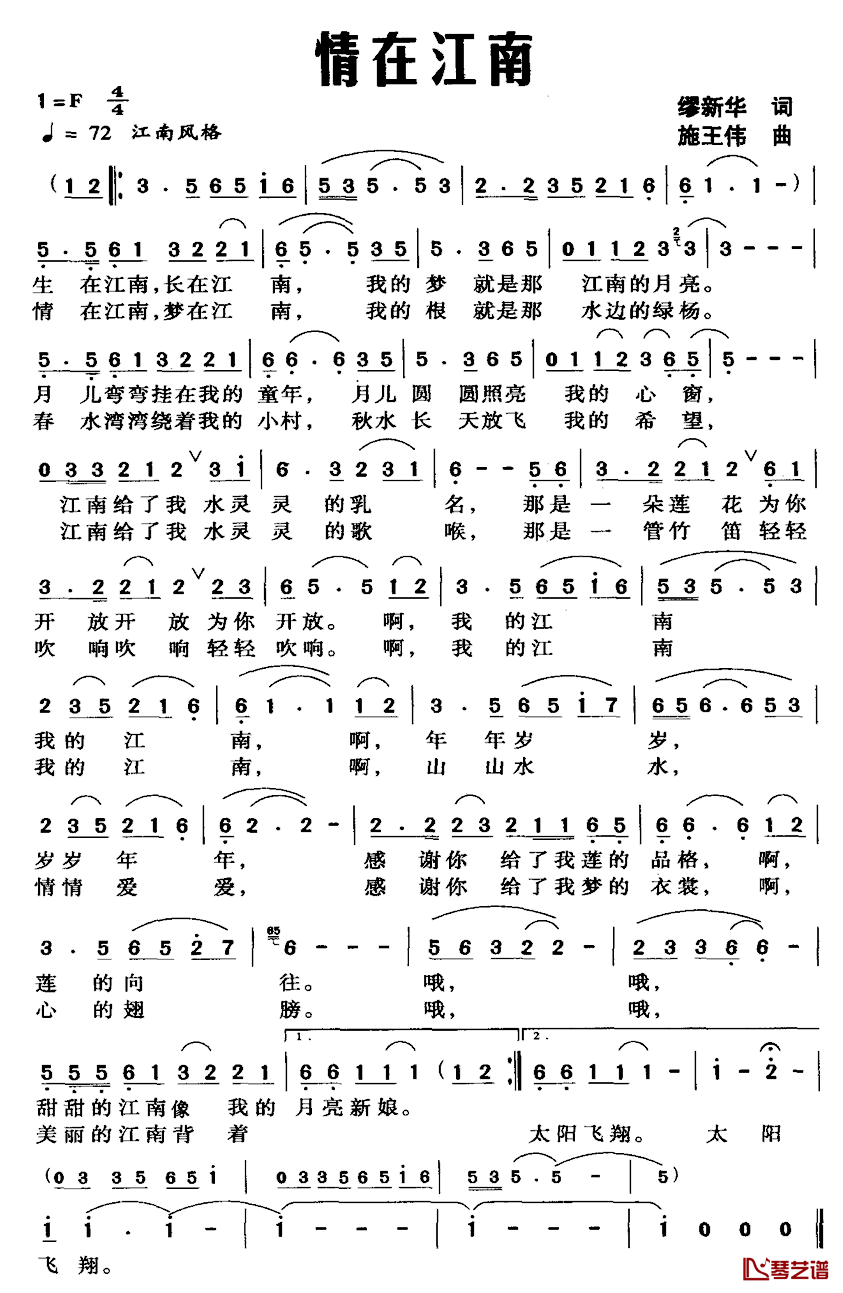 情在江南
1=F 4/4
缪新华 词
♩= 72 江南风格
施王伟 曲
(1 2 ‖: 3 . 5 6 5 i 6 | 5 3 5 . 5 3 | 2 . 2 3 5 2 1 6 | 6 1 . 1 -) |
5 . 5 6 1 3 2 2 1 | 6 5 . 5 3 5 | 5 . 3 6 5 | 0 1 1 2 3 3 | 3 - - - |
生 在江南,长在江 南, 我的 梦 就是那 江南的月亮。
情 在江南,梦在江 南, 我的 根 就是那 水边的绿杨。
5 . 5 6 1 3 2 2 1 | 6 6 . 6 3 5 | 5 . 3 6 5 | 0 1 1 2 3 6 5 | 5 - - - |
月 儿弯弯挂在我的 童年, 月儿 圆 圆照亮 我的 心 窗,
春 水湾湾绕着我的 小村, 秋水 长 天放飞 我的 希 望,
0 3 3 2 1 2 ∨ 3 i | 6 . 3 2 3 1 | 6 - - 5 6 | 3 . 2 2 1 2 ∨ 6 1 |
江南给了我 水灵 灵 的乳 名, 那是 一 朵莲 花 为你
江南给了我 水灵 灵 的歌 喉, 那是 一 管竹 笛 轻轻
3 . 2 2 1 2 ∨ 2 3 | 6 5 . 5 1 2 | 3 . 5 6 5 i 6 | 5 3 5 . 5 3 |
开 放开 放 为你 开放。 啊, 我 的江 南
吹 响吹 响 轻轻 吹响。 啊, 我 的江 南
2 3 5 2 1 6 | 6 1 . 1 1 2 | 3 . 5 6 5 i 7 | 6 5 6 . 6 5 3 |
我的 江 南, 啊, 年 年岁 岁,
我的 江 南, 啊, 山 山水 水,
2 3 5 2 1 6 | 6 2 . 2 - | 2 . 2 2 3 2 1 1 6 5 | 6 6 . 6 1 2 |
岁岁 年 年, 感 谢你 给了我莲的 品格, 啊,
情情 爱 爱, 感 谢你 给了我梦的 衣裳, 啊,
3 . 5 6 5 2 7 | 65 6 - - - | 5 6 3 2 2 - | 2 3 3 6 6 - |
莲 的向 往。 哦, 哦,
心 的翅 膀。 哦, 哦,
1. 2.
5 5 5 6 1 3 2 2 1 | 6 6 1 1 1 (1 2 :‖ 6 6 1 1 1 - | i - 2 - |
甜甜的江南像 我的 月亮新娘。
美丽的江南背 着 太阳飞翔。 太 阳
(0 3 3 5 6 5 i | 0 3 3 5 6 5 i 6 | 5 3 5 . 5 - | 5)
i i . i - | i - - - | i - - - | i 0 0 0 ‖
飞 翔。
琴艺谱